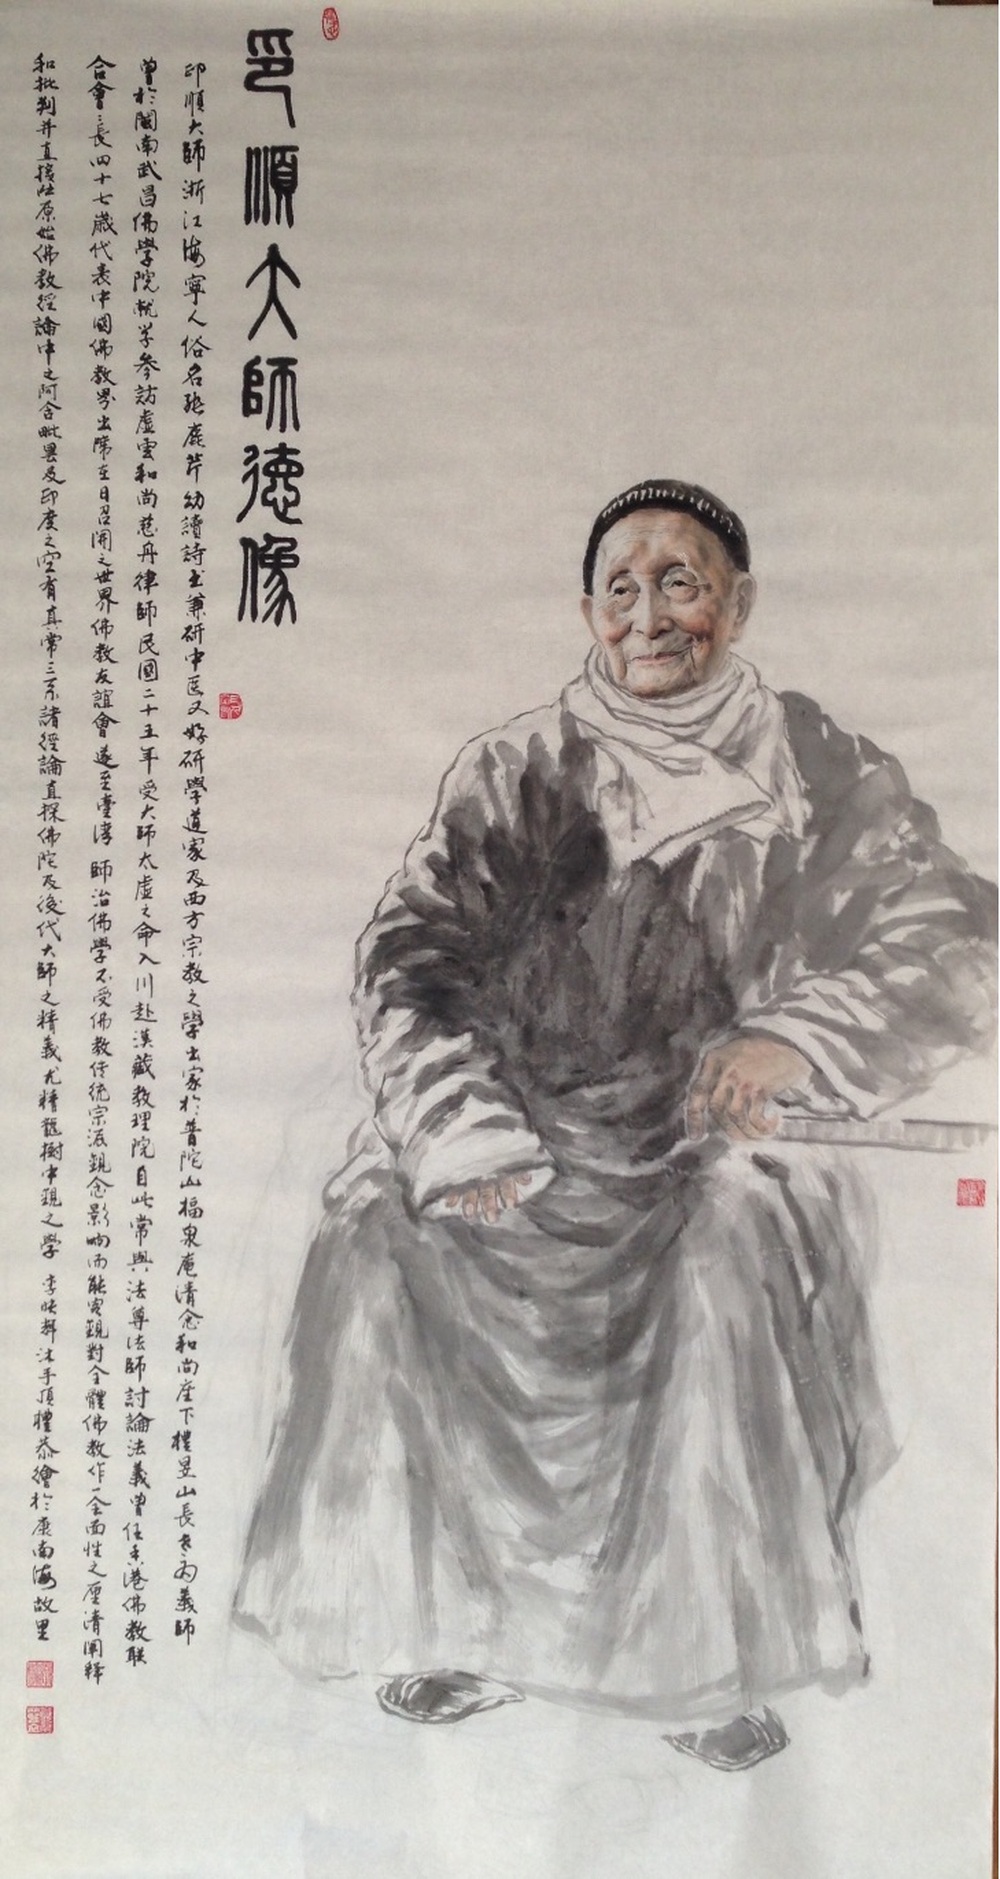 印順大師德像
印順大師浙江海寧人俗名張鹿芹幼讀詩書兼研中医又好研學道家及西方宗教之學出家於普陀山福泉庵清念和尚座下禮昱山長老为義師
曾於閩南武昌佛學院就学參訪虛雲和尚慈舟律師民國二十五年受大師太虛之命入川赴漢藏教理院自此常與法尊法師討論法義曾任香港佛教联
合會會長四十七歲代表中國佛教界出席在日召開之世界佛教友誼會遂至臺灣 師治佛學不受佛教传统宗派觀念影响而能客觀對全體佛教作一全面性之厘清闡释
和批判并直接從原始佛教經論中之阿含毗曇及印度之空有真常三系諸經論直探佛陀及後代大師之精義尤精龍樹中觀之學 李映輝沐手頂禮恭繪於康南海故里